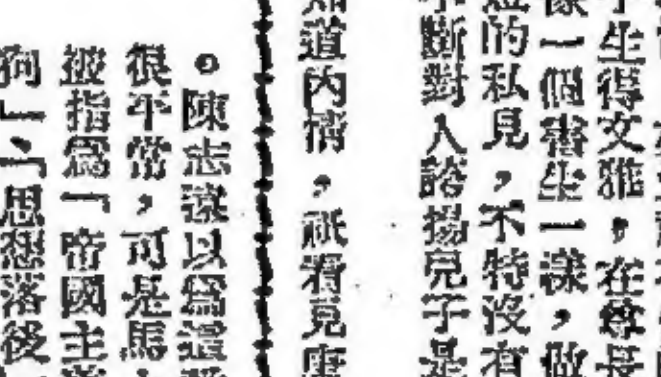 生得文雅，在尊長
像一個書生一樣，做
的私見，不特沒有
斷對人誇揚兒子是
知道內情，祇看見
。陳志遠以爲這
很平常，可是馬
被指爲「帝國主
狗」「思想落後